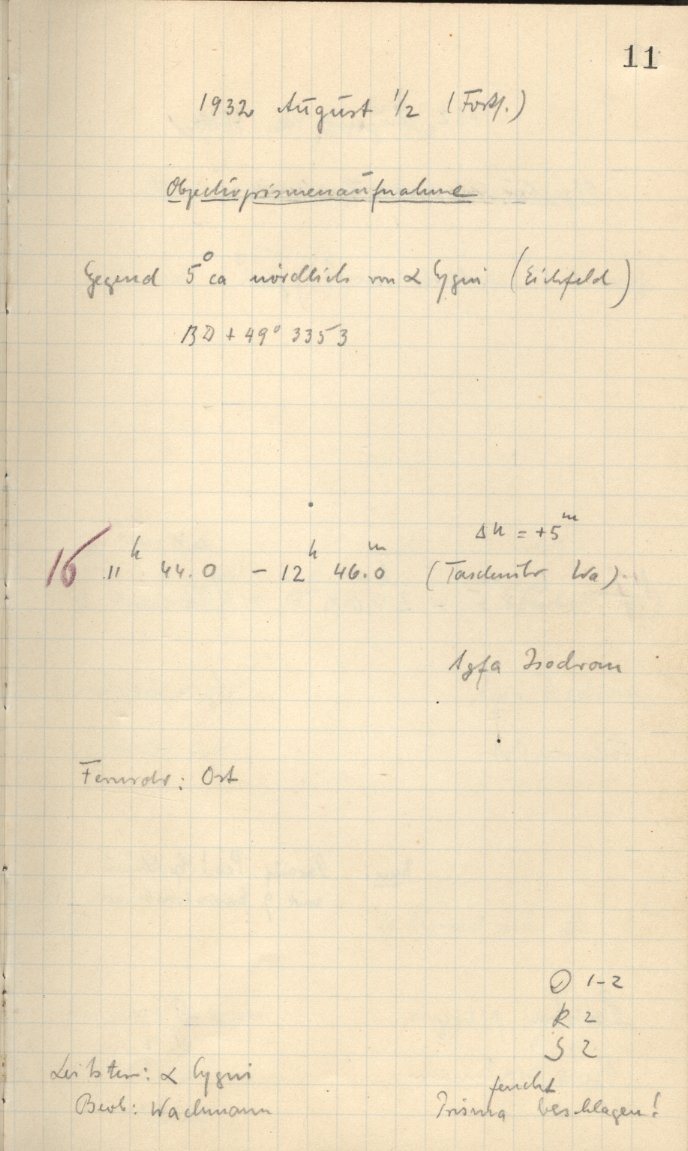 11
1932 August 1/2 (Forts.)
Objectivprismenaufnahme
Gegend 5° ca nördlich von α Cygni (Eichfeld)
BD + 49° 3353
Δu = +5ᵐ
16 11ʰ 44.0 – 12ʰ 46.0ᵐ (Taschenuhr Wa)
Agfa Isochrom
Fernrohr: Ost
D 1-2
R 2
S 2
Leitstern: α Cygni
feucht
Beob: Wachmann Prisma beschlagen!